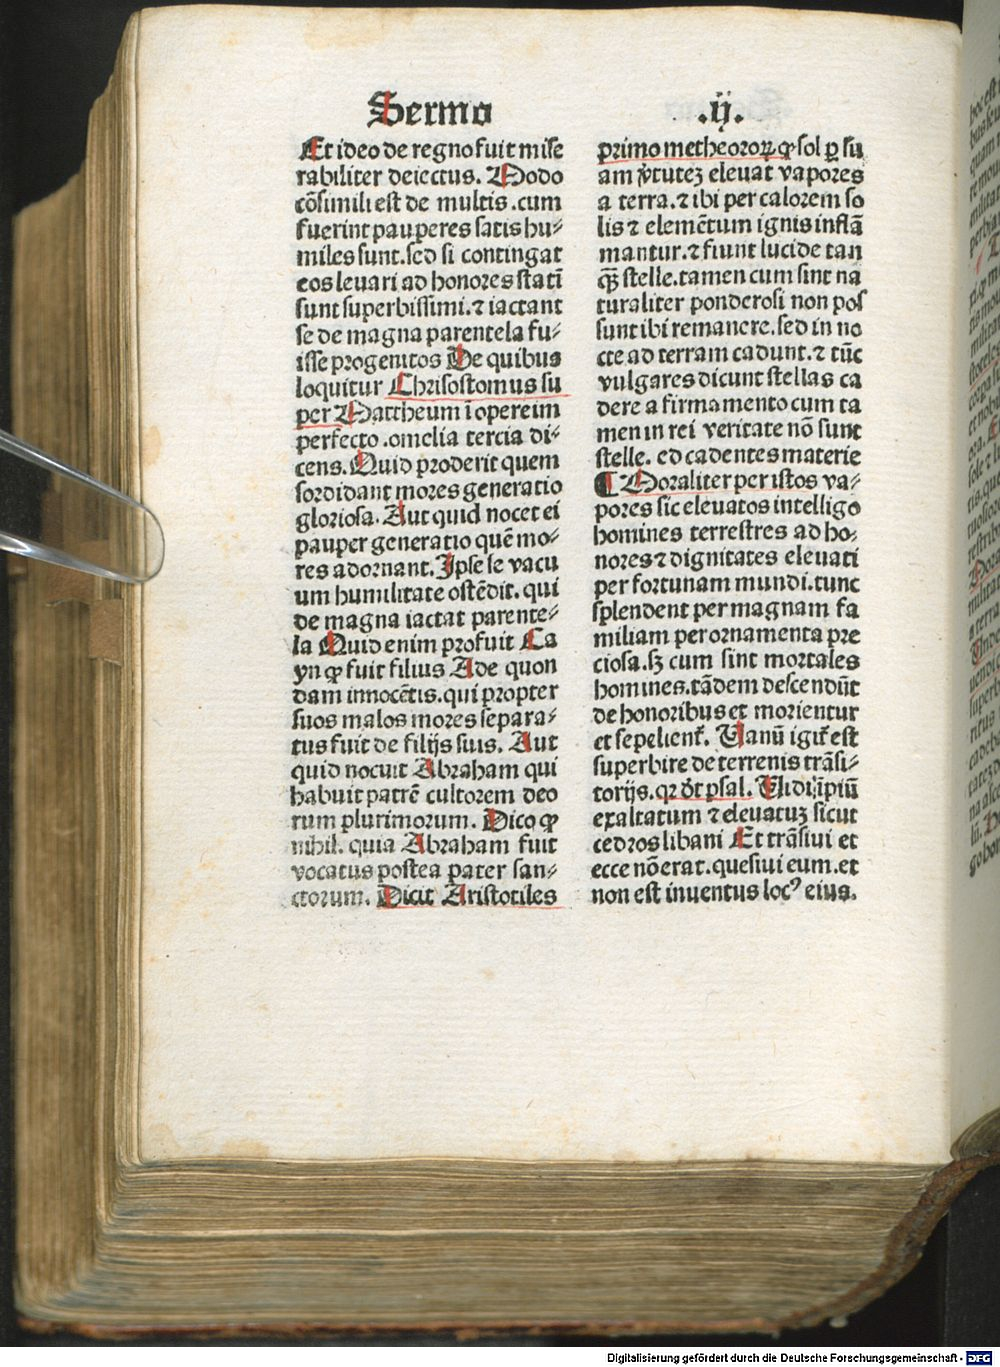 Sermo .ij.
Et ideo de regno fuit mise
rabiliter deiectus. Modo
cōsimili est de multis .cum
fuerint pauperes satis hu⸗
miles sunt.sed si contingat
eos leuari ad honores statī
sunt superbissimi.⁊ iactant
se de magna parentela fu⸗
isse progenitos De quibus
loquitur Chrisostomus su
per Mattheum ī opere im
perfecto .omelia tercia di⸗
cens. Quid proderit quem
sordidant mores generatio
gloriosa. Aut quid nocet ei
pauper generatio quē mo⸗
res adornant. Ipse se vacu
um humilitate ostēdit. qui
de magna iactat parente⸗
la Quid enim profuit Ca
yn ꝙ fuit filius Ade quon
dam innocētis. qui propter
suos malos mores separa⸗
tus fuit de filijs suis. Aut
quid nocuit Abraham qui
habuit patrē cultorem deo
rum plurimorum. Dico ꝙ
nihil. quia Abraham fuit
vocatus postea pater san⸗
ctorum. Dicit Aristotiles
primo metheoroꝝ ꝙ sol ꝑ su
am v̄tuteꝫ eleuat vapores
a terra.⁊ ibi per calorem so
lis ⁊ elemētum ignis inflā
mantur.⁊ fiunt lucide tan
ꝙ̄ stelle.tamen cum sint na
turaliter ponderosi non pos
sunt ibi remanere.sed in no
cte ad terram cadunt.⁊ tūc
vulgares dicunt stellas ca
dere a firmamento cum ta
men in rei veritate nō sunt
stelle. ed cadentes materie
¶ Moraliter per istos va⸗
pores sic eleuatos intelligo
homines terrestres ad ho⸗
nores ⁊ dignitates eleuati
per fortunam mundi.tunc
splendent per magnam fa
miliam per ornamenta pre
ciosa.sꝫ cum sint mortales
homines.tādem descendūt
de honoribus et morientur
et sepelienť. Vanū igiť est
superbire de terrenis trāsi⸗
torijs. qꝛ d̄t psal. Vidi īpiū
exaltatum ⁊ eleuatuꝫ sicut
cedros libani Et trāsiui et
ecce nō erat. quesiui eum.et
non est inuentus locꝰ eius.
Digitalisierung gefördert durch die Deutsche Forschungsgemeinschaft - DFG